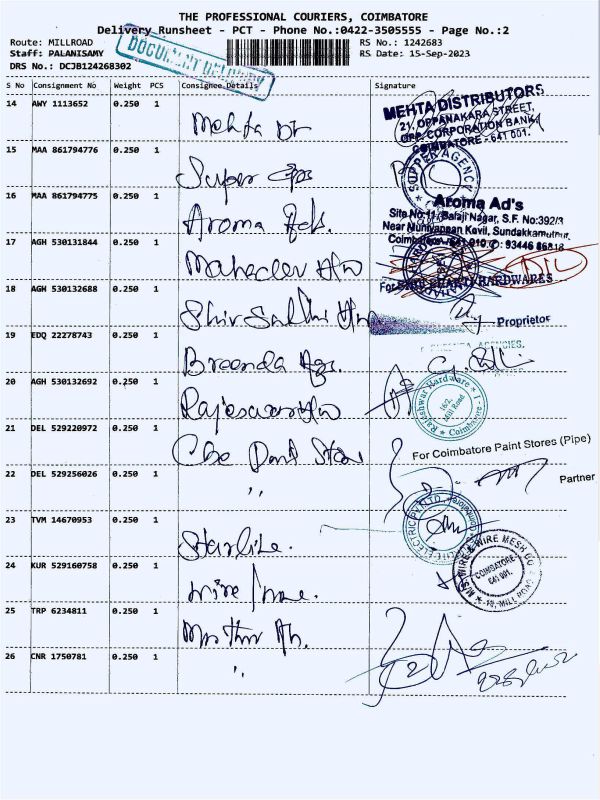 THE PROFESSIONAL COURIERS, COIMBATORE
Delivery Runsheet - PCT - Phone No.:0422-3505555 - Page No.:2
Route: MILLROAD
RS No.: 1242683
Staff: PALANISAMY
RS Date: 15-Sep-2023
DRS No.: DCJB124268302
DOCUMENT DELIVERY
S No Consignment No Weight PCS Consignee Details Signature
14 AWY 1113652 0.250 1
Mehta Dt
MEHTA DISTRIBUTORS
21, OPPANAKARA STREET,
OPP. CORPORATION BANK
COIMBATORE - 641 001.
15 MAA 861794776 0.250 1
Super
SUPPER AGENCY
16 MAA 861794775 0.250 1
Aroma Ads.
Aroma Ad's
Site No:11, Balaji Nagar, S.F. No:392/3
Near Muniyappan Kovil, Sundakkamuthur,
Coimbatore - 641 010. : 93446 86818
17 AGH 530131844 0.250 1
Mahadev H/w
18 AGH 530132688 0.250 1
Shiv Sakthi H/w
HARDWARES
Proprietor
19 EDQ 22278743 0.250 1
Breenda Ags.
AGENCIES.
20 AGH 530132692 0.250 1
Rajeswari H/w
Rajeshwar Hardware
162,
Mill Road
Coimbatore - 1
21 DEL 529220972 0.250 1
Cbe Paint Store
For Coimbatore Paint Stores (Pipe)
Partner
22 DEL 529256026 0.250 1
"
23 TVM 14670953 0.250 1
Starlite.
ELECTRIC PVT LTD
24 KUR 529160758 0.250 1
Wire
WIRE & WIRE MESH CO
COIMBATORE
641 001.
MILL ROAD
25 TRP 6234811 0.250 1
26 CNR 1750781 0.250 1
"